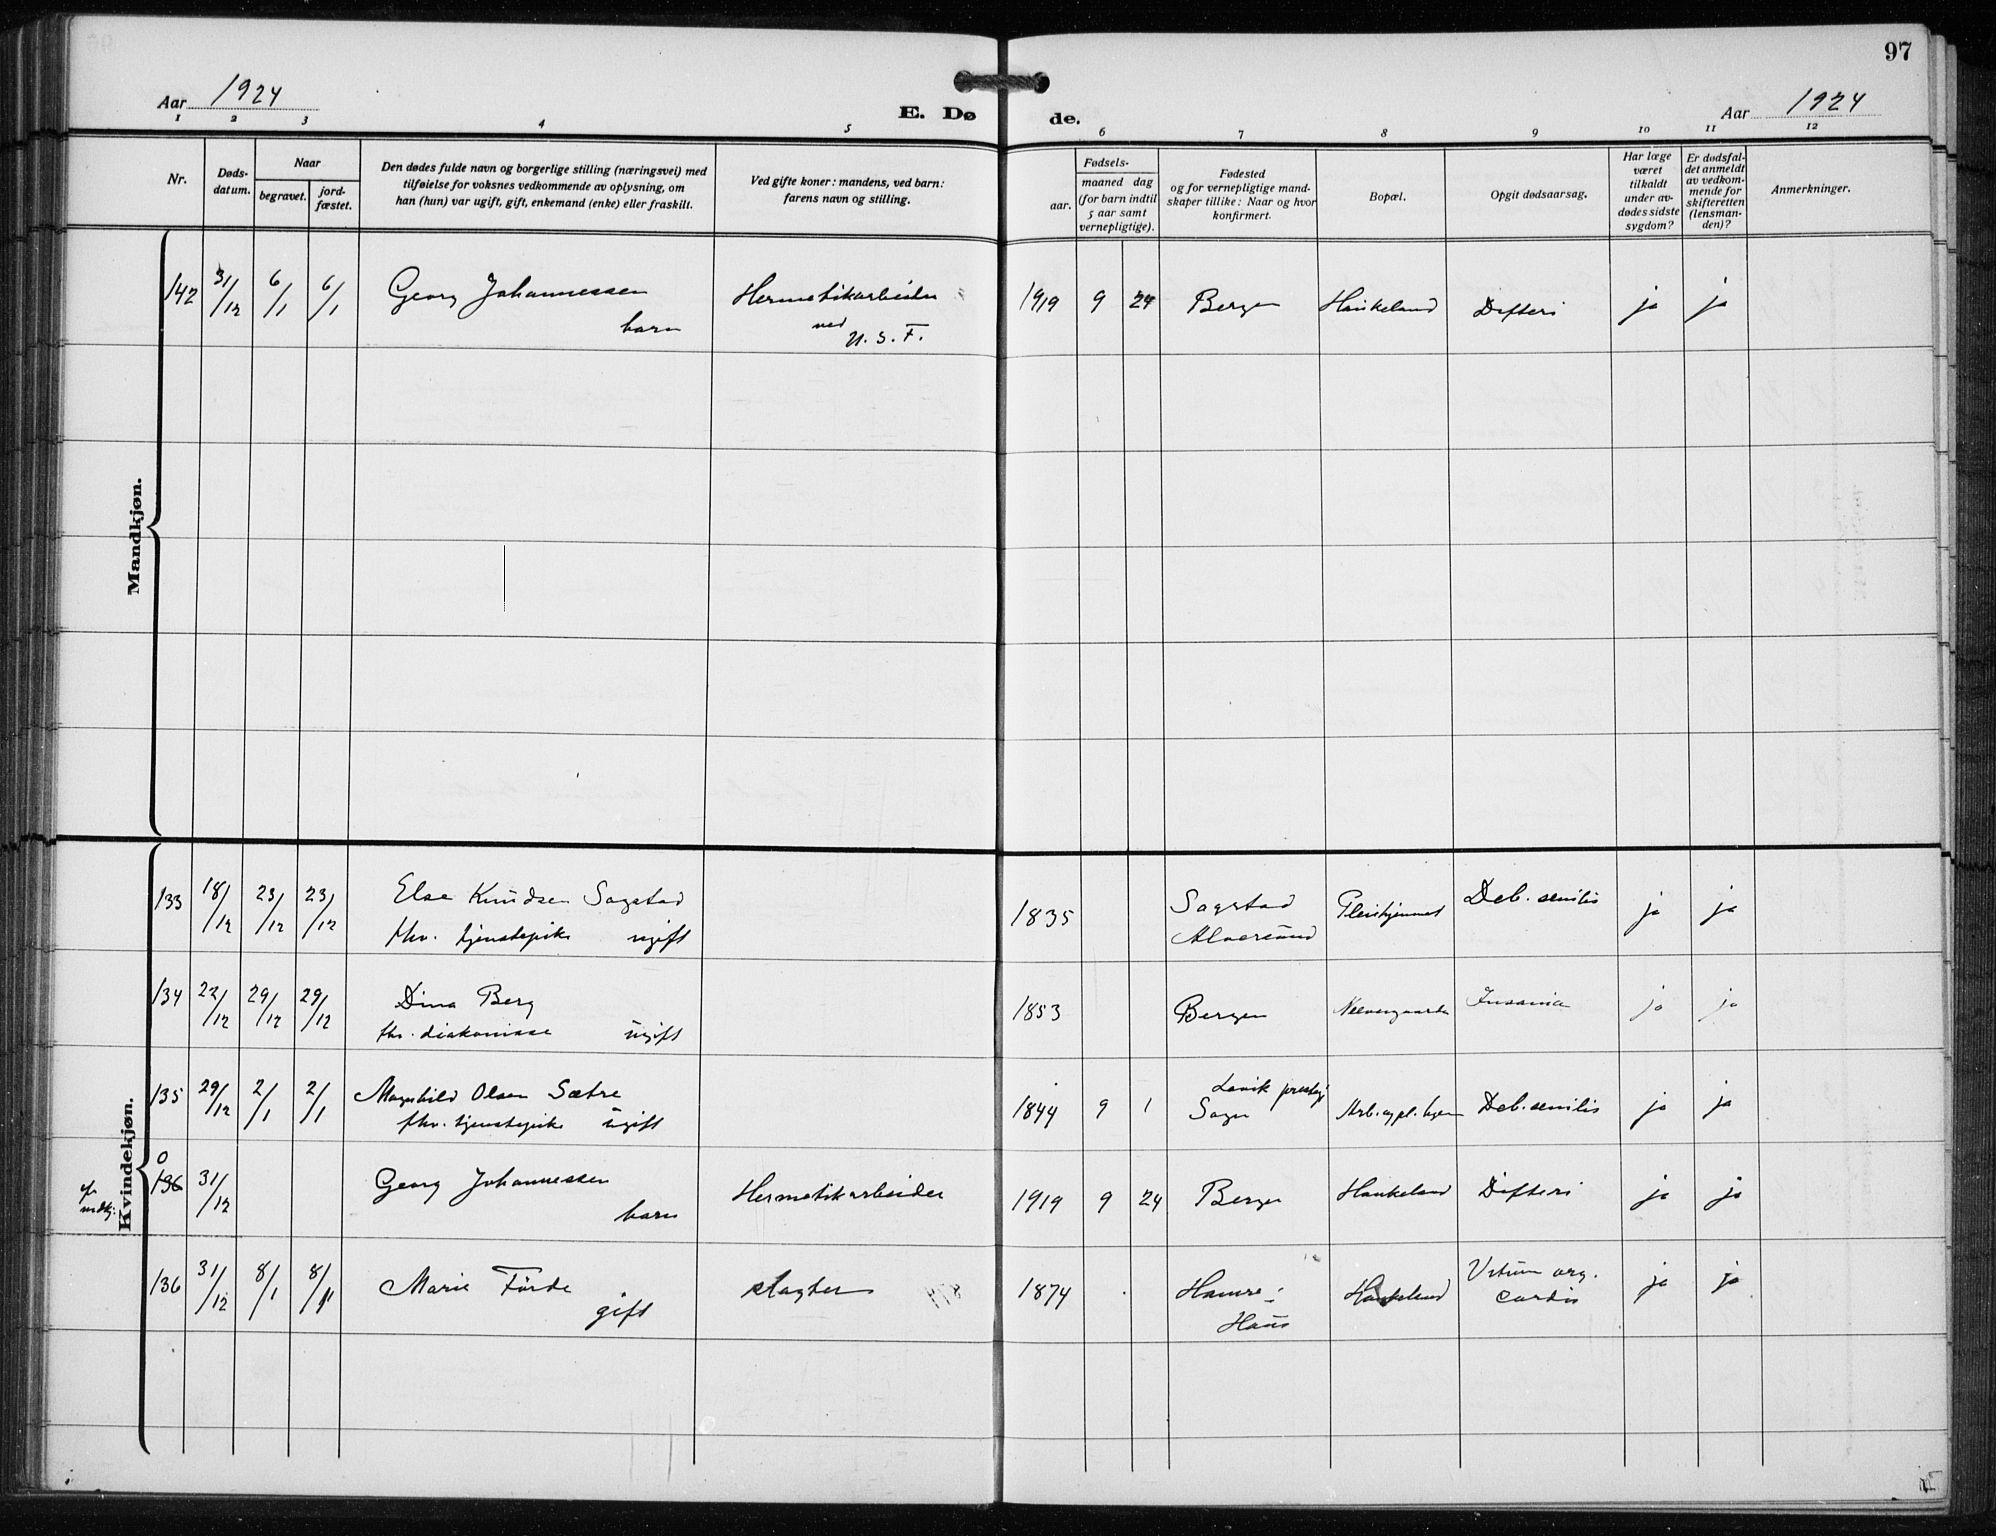 97
Aar 1924
E. Døde.
Aar 1924
1 2 3 4 5 6 7 8 9 10 11 12
Nr.
Døds-datum.
Naar
begravet.
jord-fæstet.
Den dødes fulde navn og borgerlige stilling (næringsvei) med
tilføielse for voksnes vedkommende av oplysning, om
han (hun) var ugift, gift, enkemand (enke) eller fraskilt.
Ved gifte koner: mandens, ved barn:
farens navn og stilling.
Fødsels-
aar.
maaned dag
(for barn indtil
5 aar samt
vernepligtige).
Fødested
og for vernepligtige mand-
skaper tillike: Naar og hvor
konfirmert.
Bopæl.
Opgit dødsaarsag.
Har læge
været
tilkaldt
under av-
dødes sidste
sygdom?
Er dødsfal-
det anmeldt
av vedkom-
mende for
skifteretten
(lensman-
den)?
Anmerkninger.
Mandkjøn.
142 31/12 6/1 6/1 Georg Johannessen Hermetikarbeider 1919 9 24 Bergen Haukeland Difteri ja ja
barn ved
U. S. F.
Kvindekjøn.
133 18/12 23/12 23/12 Else Knudsen Sagstad 1835 Sagstad Pleiehjemmet Deb. senilis ja ja
fhv. tjenestepike ugift Alversund
134 22/12 29/12 29/12 Dina Berg 1853 Bergen Neevengaarden Insania ja ja
fhv. diakonisse ugift
135 29/12 2/1 2/1 Magnhild Olsen Sætre 1844 9 1 Lavik prestegj Deb. senilis ja ja
fhv. tjenestepike ugift Sogn
0
136 31/12 Georg Johannessen Hermetikarbeider 1919 9 24 Bergen Haukeland Difteri ja ja
barn
136 31/12 8/1 8/1 Marie Førde slagter 1874 Hamre i Haukeland Vitium org. ja ja
gift Haus cordis